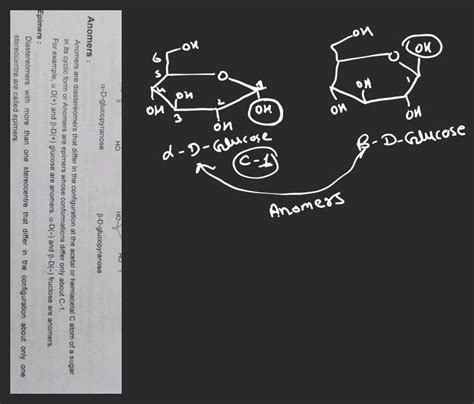 3 HO HO HO
α-D-glucopyranose β-D-glucopyranose
Anomers :
Anomers are diastereomers that differ in the configuration at the acetal or hemiacetal C atom of a sugar
in its cyclic form or Anomers are epimers whose conformations differ only about C–1.
For example, α D(+) and β-D(+) glucose are anomers. α-D(–) and β-D(–) fructose are anomers.
Epimers :
Diastereomers with more than one stereocentre that differ in the configuration about only one
stereocentre are called epimers.
OH
6
5 O
4 1
OH OH 2 OH
3 OH
α-D-Glucose
C-1
OH
O OH
OH
OH OH
β-D-Glucose
Anomers